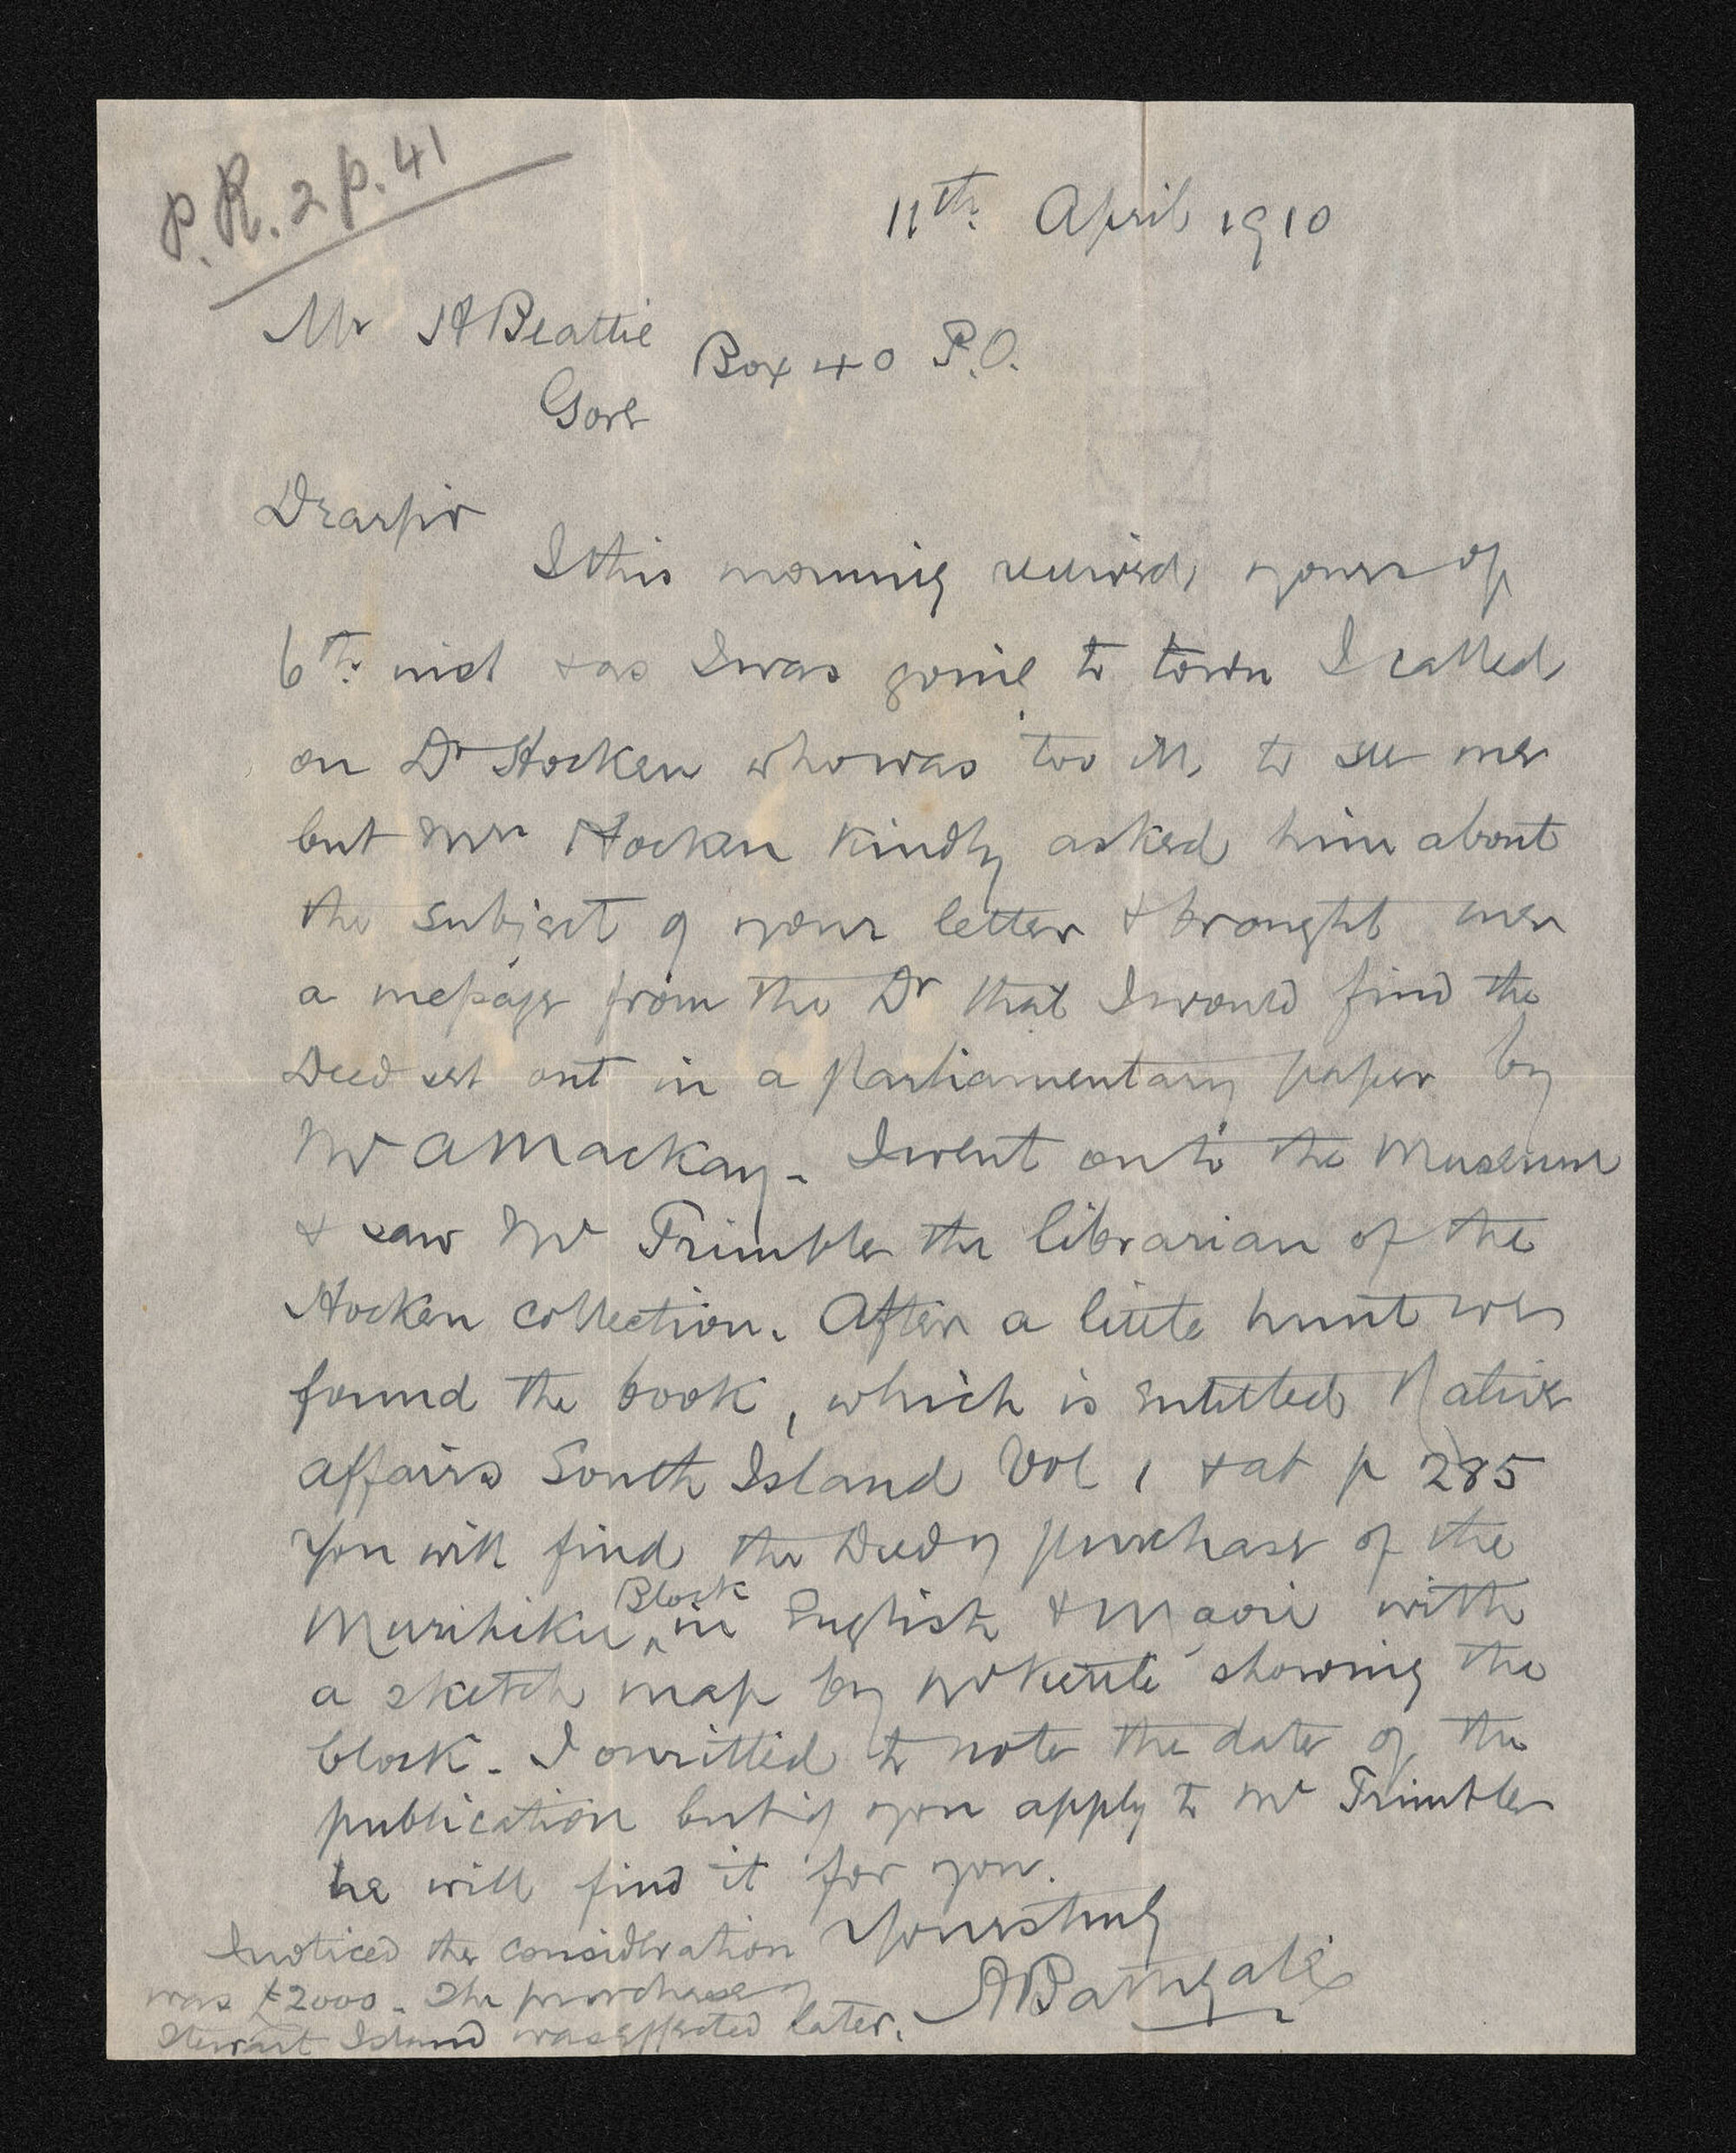 P.R. 2 p. 41
11th. April 1910
Mr H Beattie
Box 40 P.O.
Gore
Dear Sir
I this morning received yours of
6th. inst & as I was going to town I called
on Dr Hocken who was too ill to see me
but Mrs Hocken kindly asked him about
the subject of your letter & brought me
a message from the Dr that I would find the
Deed set out in a Parliamentary paper by
Mr A Mackay - I went on to the Museum
& saw Mr Trimble the librarian of the
Hocken collection. After a little hunt we
found the book, which is entitled Native
affairs South Island Vol 1 & at p 285
you will find the Deed of purchase of the
Murihiku Block in English & Maori with
a sketch map by Mr Kettle showing the
block - I omitted to note the date of the
publication but if you apply to Mr Trimble
he will find it for you.
Yours truly
A Bathgate
I noticed the consideration
was £2000 - The purchase of
Stewart Island was effected later.